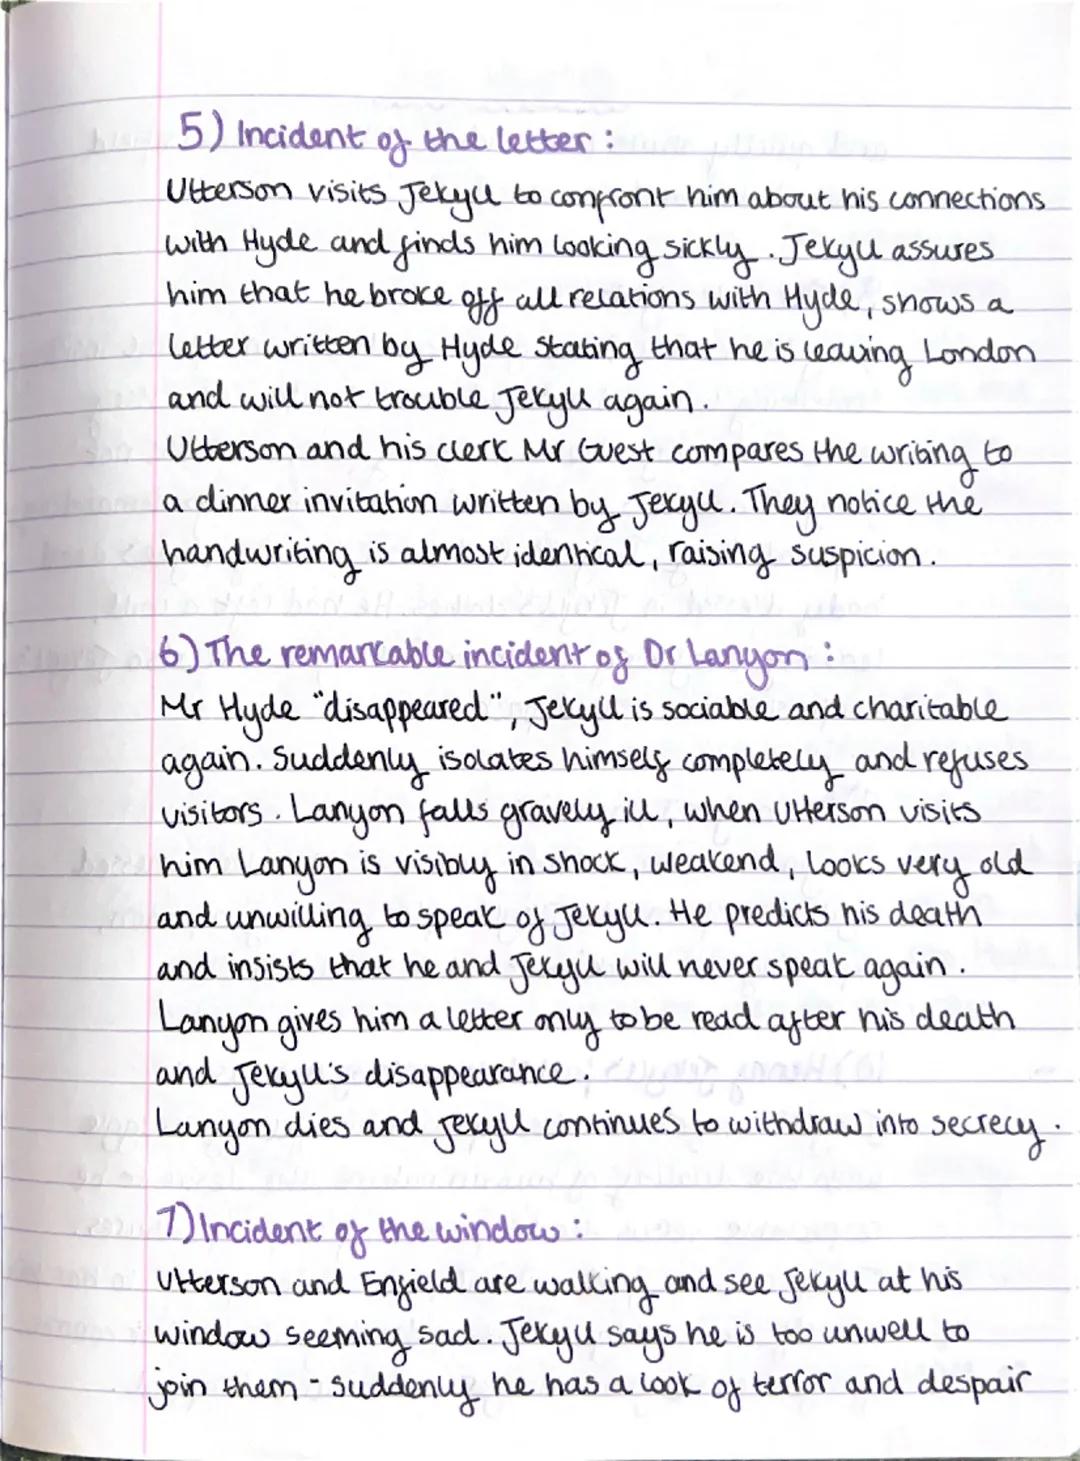 5) Incident of the letter :
Utterson visits Jekyll to confront him about his connections
with Hyde and finds him looking sickly. Jekyll assures
him that he broke off all relations with Hyde, shows a
letter written by Hyde stating that he is leaving London
and will not trouble Jekyll again.
Utterson and his clerk Mr Guest compares the writing to
a dinner invitation written by Jekyll. They notice the
handwriting is almost identical, raising suspicion.
6) The remarkable incident of Dr Lanyon :
Mr Hyde "disappeared", Jekyll is sociable and charitable
again. Suddenly isolates himself completely and refuses
visitors. Lanyon falls gravely ill, when Utterson visits
him Lanyon is visibly in shock, weakend, looks very old
and unwilling to speak of Jekyll. He predicts his death
and insists that he and Jekyll will never speak again.
Lanyon gives him a letter only to be read after his death
and Jekyll's disappearance.
Lanyon dies and Jekyll continues to withdraw into secrecy.
7) Incident of the window :
Utterson and Enfield are walking and see Jekyll at his
window seeming sad. Jekyll says he is too unwell to
join them - suddenly he has a look of terror and despair